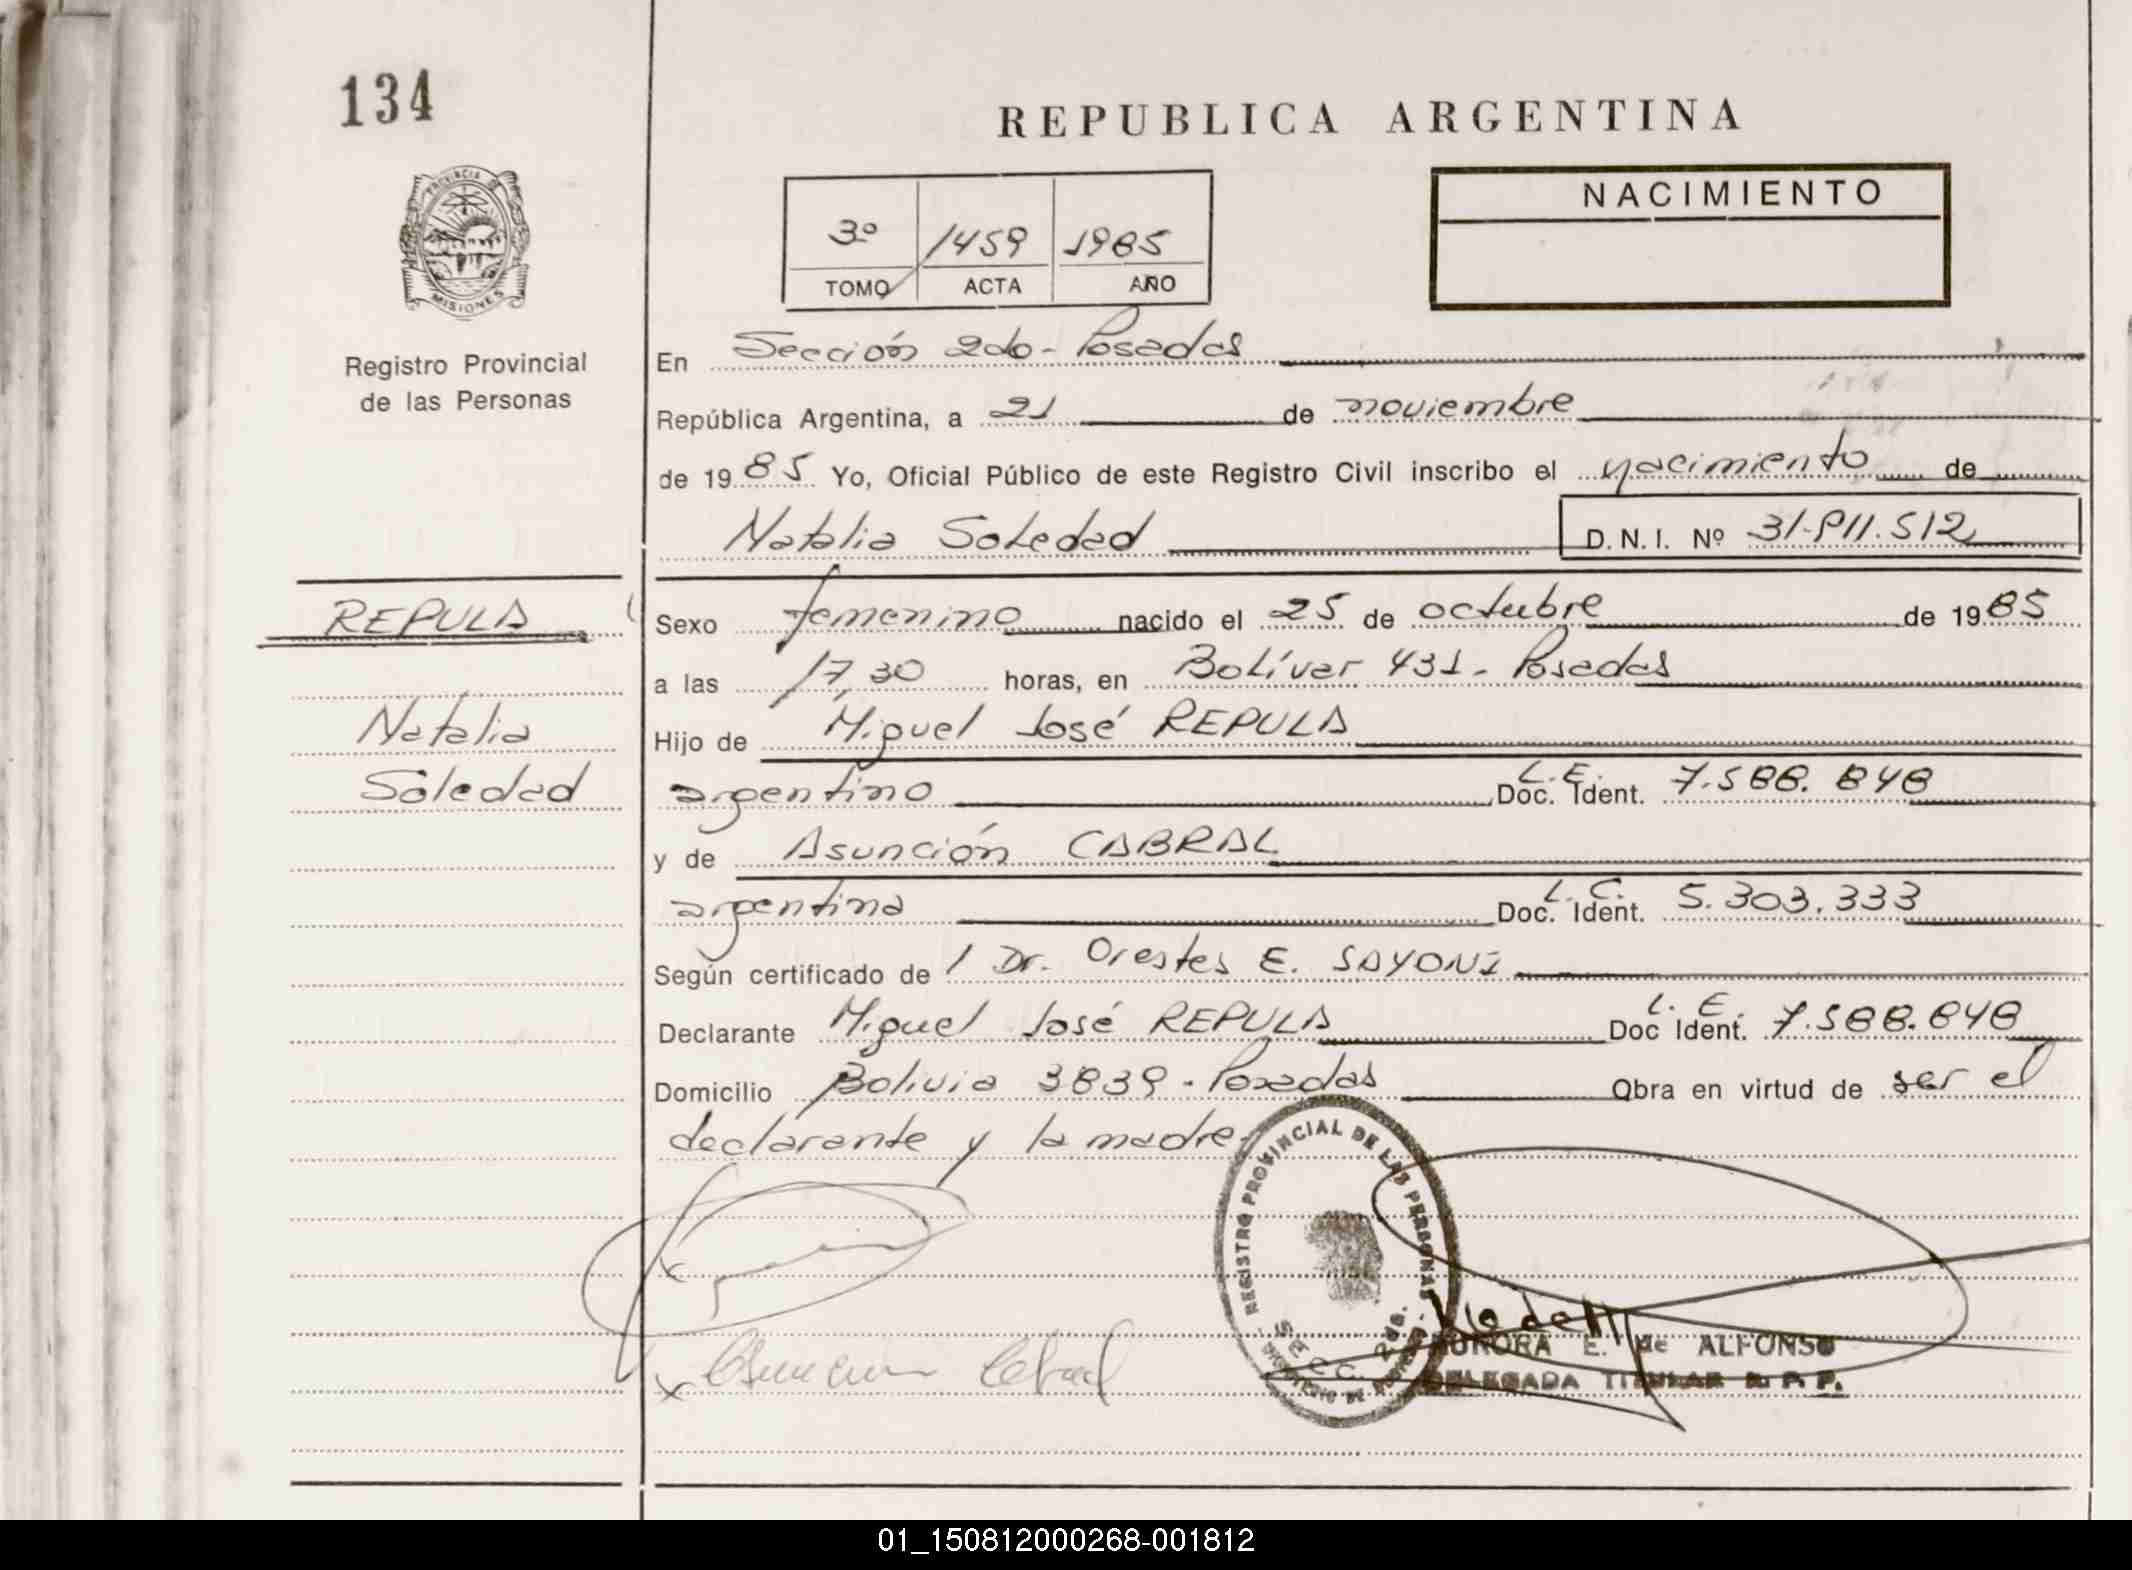 134
REPUBLICA ARGENTINA
PROVINCIA DE
MISIONES
Registro Provincial
de las Personas
3º 1459 1985
TOMO ACTA AÑO
NACIMIENTO
En Sección 2do - Posadas
República Argentina, a 21 de noviembre
de 1985 Yo, Oficial Público de este Registro Civil inscribo el nacimiento de
Natalia Soledad D.N.I. Nº 31.911.512
REPULA
Natalia
Soledad
Sexo femenino nacido el 25 de octubre de 1985
a las 17,30 horas, en Bolívar 431 - Posadas
Hijo de Miguel José REPULA
argentino Doc. Ident. L.E. 7.588.848
y de Asunción CABRAL
argentina Doc. Ident. L.C. 5.303.333
Según certificado de 1 Dr. Orestes E. SAYONI
Declarante Miguel José REPULA Doc Ident. L.E. 7.588.848
Domicilio Bolivia 3839 - Posadas Obra en virtud de ser el
declarante y la madre
REGISTRO PROVINCIAL DE LAS PERSONAS
SECC. 2da.
x
x Asuncion Cabral
AURORA E. de ALFONSO
DELEGADA TITULAR R. P. P.
01_150812000268-001812